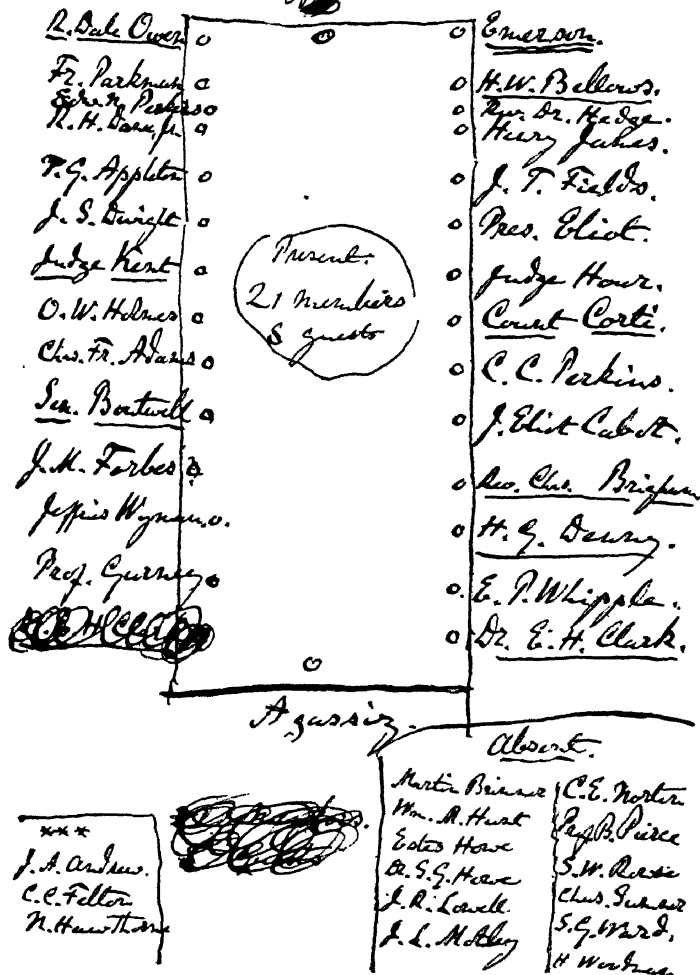 R. Dale Owen
Fr. Parkman
Edw. N. Perkins
R. H. Dana, Jr.
T. G. Appleton
J. S. Dwight
Judge Kent
O. W. Holmes
Chs. Fr. Adams
Sen. Boutwell
J. M. Forbes
Jeffries Wyman
Prof. Gurney
Present.
21 members
8 guests
Emerson.
H. W. Bellows.
Rev. Dr. Hedge.
Henry James.
J. T. Fields.
Pres. Eliot.
Judge Hoar.
Count Corti.
C. C. Perkins.
J. Eliot Cabot.
Rev. Chs. Brigham
H. G. Denny.
E. P. Whipple.
Dr. E. H. Clark.
Agassiz.
***
J. A. Andrew.
C. C. Felton
N. Hawthorne
Absent.
Martin Brimmer
Wm. R. Hunt
Estes Howe
Dr. S. G. Howe
J. R. Lowell.
J. L. Motley
C. E. Norton
Prof B. Peirce
S. W. Rowse
Chas. Sumner
S. G. Ward.